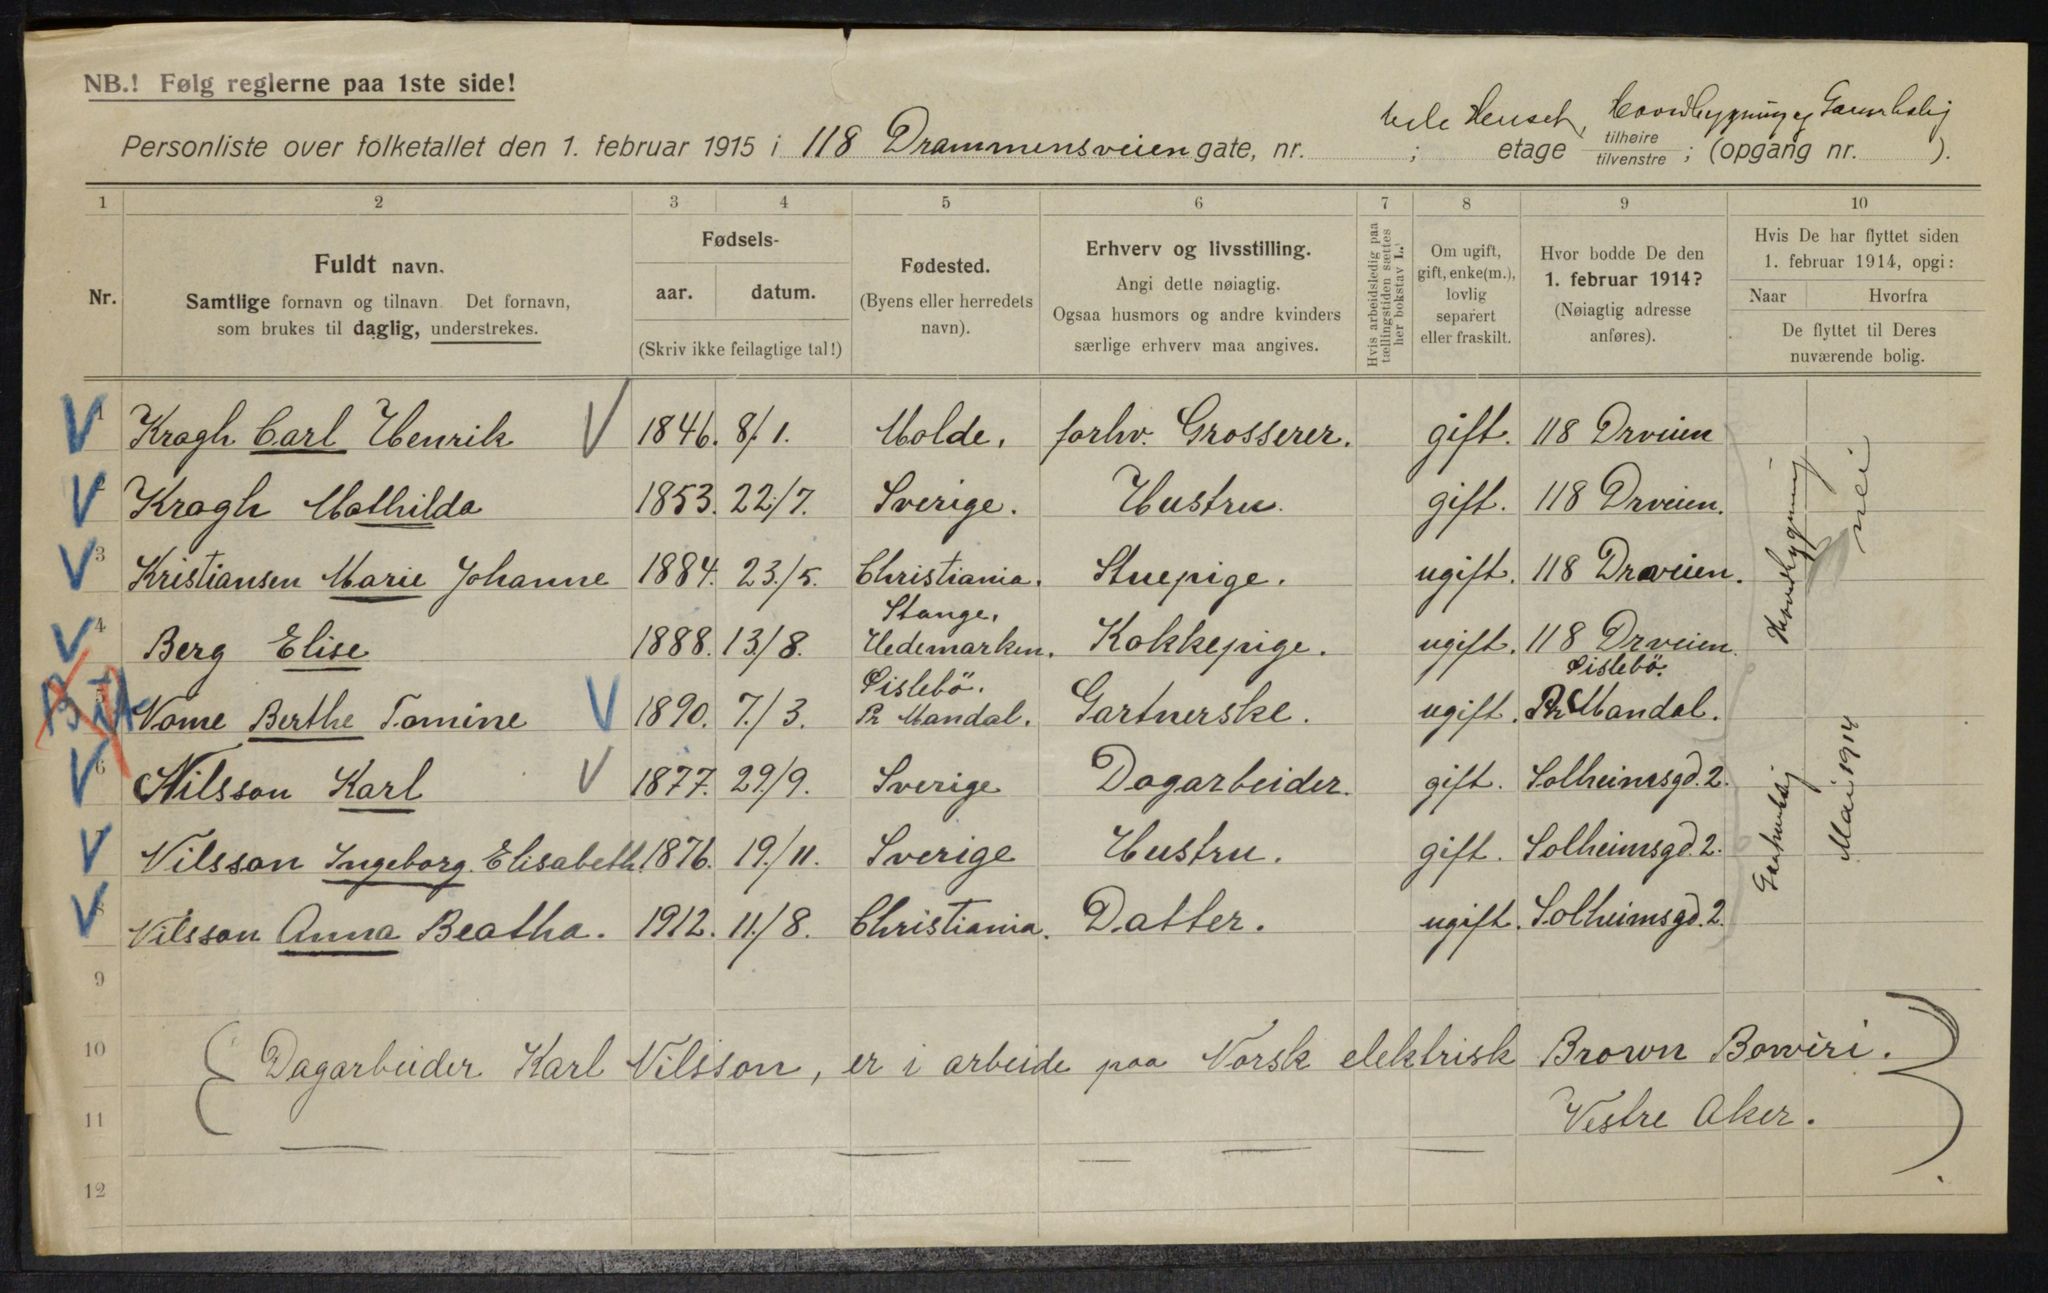 NB.! Følg reglerne paa 1ste side!
hele Huset,
Personliste over folketallet den 1. februar 1915 i 118 Drammensveien gate, nr. ; etage tilhøire tilvenstre ; (opgang nr. ).
1 2 3 4 5 6 7 8 9 10
Nr.
Fuldt navn.
Samtlige fornavn og tilnavn. Det fornavn,
som brukes til daglig, understrekes.
Fødsels-
aar. datum.
(Skriv ikke feilagtige tal!)
Fødested.
(Byens eller herredets
navn).
Erhverv og livsstilling.
Angi dette nøiagtig.
Ogsaa husmors og andre kvinders
særlige erhverv maa angives.
Hvis arbeidsledig paa
tællingstiden sættes
her bokstav L.
Om ugift,
gift, enke(m.),
lovlig
separert
eller fraskilt.
Hvor bodde De den
1. februar 1914?
(Nøiagtig adresse
anføres).
Hvis De har flyttet siden
1. februar 1914, opgi:
Naar Hvorfra
De flyttet til Deres
nuværende bolig.
1 Kragh Carl Henrik 1846. 8/1. Molde. forhv. Grosserer. gift. 118 Drveien
2 Kragh Mathilda 1853. 22/7. Sverige. Hustru. gift. 118 Drveien.
3 Kristiansen Marie Johanne 1884. 23./5. Christiania. Stuepige. ugift. 118 Drveien.
4 Berg Elise 1888. 13/8. Stange, Hedemarken. Kokkepige. ugift. 118 Drveien.
5 Vome Berthe Tomine 1890. 7./3. Øislebö. Pr Mandal. Gartnerske. ugift. Øislebö. Pr Mandal.
6 Nilsson Karl 1877. 29./9. Sverige Dagarbeider. gift. Solheimsgd. 2.
7 Nilsson Ingeborg Elisabeth. 1876. 19./11. Sverige Hustru. gift. Solheimsgd. 2.
8 Nilsson Anna Beatha. 1912. 11./8. Christiania. Datter. ugift. Solheimsgd. 2.
Hovedbygning
nei
Mai 1914
9
10 Dagarbeider Karl Nilsson, er i arbeide paa Norsk elektrisk Brown Bowiri.
11 Vestre Aker.
12